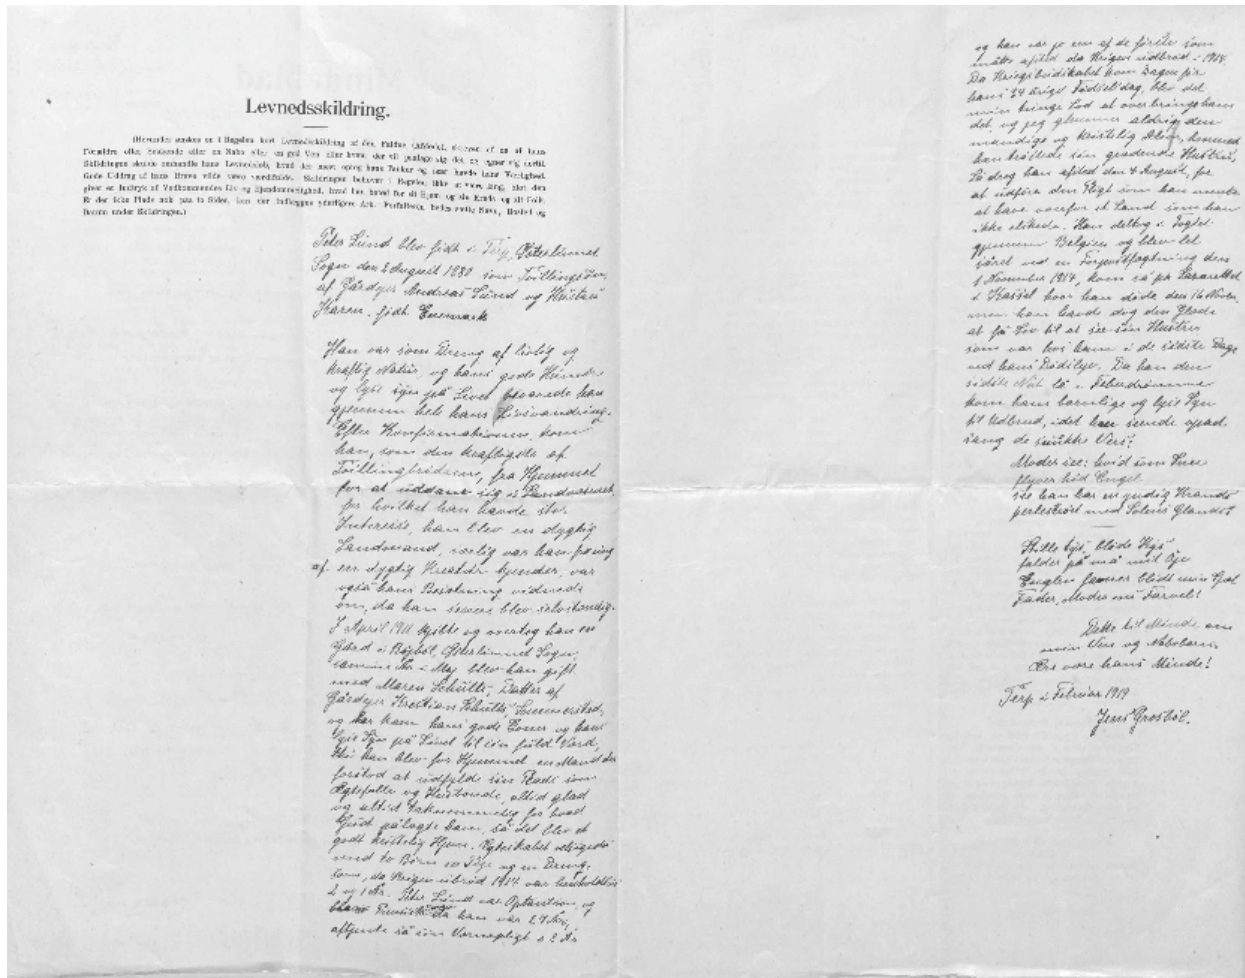 Levnedsskildring.
(Herunder ønskes en i Regelen kort Levnedsskildring af den Faldne (Afdøde), skreven af en af hans
Forældre eller Søskende eller en Nabo eller en god Ven eller hvem, der vil paatage sig det og egner sig dertil.
Skildringen skulde omhandle hans Levnedsløb, hvad der mest optog hans Tanker og især havde hans Kærlighed.
Gode Uddrag af hans Breve vilde være værdifulde. Skildringen behøver i Regelen ikke at være lang, blot den
giver et Indtryk af Vedkommendes Liv og Ejendommelighed, hvad han betød for sit Hjem og sin Kreds og sit Folk.
Er der ikke Plads nok paa to Sider, kan der indlægges yderligere Ark. Forfatteren bedes sætte Navn, Bosted og
Datum under Skildringen.)
Peter Lund blev født i Terp, Østerlinnet
Sogn den 2 August 1880 som Tvillingsøn
af Gårdejer Andreas Lund og Hustru
Karen, født Enemark
Han var som Dreng af livlig og
kraftig Natur, og hans gode Humør
og lyse Syn på Livet bevarede han
gjennem hele hans Livsvandring.
Efter Konfirmationen kom
han, som den kraftigste af
Tvillingbrødrene, fra Hjemmet
for at uddanne sig i Landvæsenet,
for hvilket han havde stor
Interesse, han blev en dygtig
Landmand, særlig var han
af en dygtig Kreatur kjender, var
også hans Besætning vidnede
om, da han senere blev selvstændig.
I April 1911 kjøbte og overtog han en
Gård i Bøjbøl, Østerlinnet Sogn,
samme År i Maj blev han gift
med Maren Schultz, Datter af
Gårdejer Krestian Schultz
og her kom hans gode Evner og hans
lyse Syn på Livet til sin fuld Værd,
thi han blev for Hjemmet en Mand der
forstod at udfylde sin Plads som
Ægtefælle og Husbonde, altid glad
og altid taknemmelig for hvad
Gud pålagde ham, så det blev et
godt kristelig Hjem. Ægteskabet velsignedes
med to Børn en Pige og en Dreng,
som, da Krigen udbrød 1914 var henholdsvis
2 og 1 År. Peter Lund var Optantsøn, og
blev Preussisk da han var 27 År,
aftjente så sin Værnepligt i 2 År
og han var jo en af de første som
måtte afsted da Krigen udbrød i 1914.
Da Krigsbudskabet kom Dagen før
hans 34 årige Fødselsdag, blev det
min tunge Lod at overbringe ham
det, og jeg glemmer aldrig den
mandige og kristelig Alvor, hvormed
han trøstede sin grædende Hustru,
Så drog han afsted den 4 August, for
at udføre den Pligt som han mente
at have overfor et Land som han
ikke elskede. Han deltog i Togtet
gjennem Belgien og blev let
såret ved en Forpostfægtning den
1 November 1914, kom så på Lazarettet
i Kassel hvor han døde den 16 Novem.
men han havde dog den Glæde
at få Lov til at see sin Hustru
som var hos ham i de sidste Dage
ved hans Dødsleje. Da han den
sidste Nat lå i Feberdrømme
kom hans barnlige og lyse Syn
til Udbrud, idet han sende opad
sang de smukke Vers:
Moder see: hvid som Snee
flyver hid Engel
see han har en yndig Krands
perlestrøet med Solens Glands!
Stille tys, bløde Kys
falder på må mit Øje
Englen favner blidt min Sjæl
Fader, Moder mi Farvel!
Dette til Minde om
min Ven og Nabobarn
Ære være hans Minde!
Terp i Februar 1919
Jens Grosbøl.